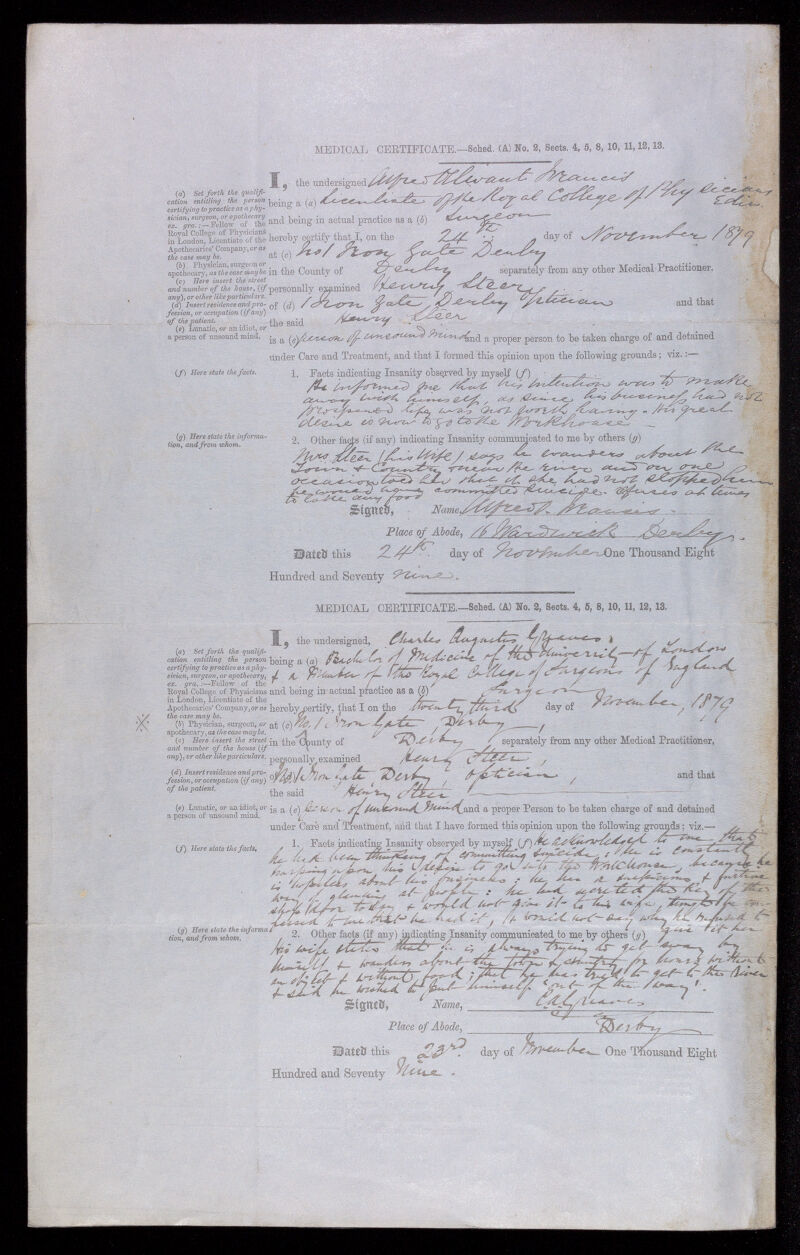 MEDICAL CERTIFICATE.—Sched. (A) No. 2, Sects. 4, 5, 8, 10, 11, 12, 13.
I, the undersigned Alfred Francis
being a (a) Licentiate of the Royal College of Physicians
Edin.
and being in actual practice as a (b) Surgeon
hereby certify that I, on the 24th day of November 1879
at (c) No 1 Iron Gate Derby
in the County of Derby separately from any other Medical Practitioner.
personally examined Henry Steer
of (d) 1 Iron Gate, Derby Optician and that
the said Henry Steer
is a (e) person of unsound mind and a proper person to be taken charge of and detained
under Care and Treatment, and that I formed this opinion upon the following grounds; viz.:—
(a) Set forth the qualifi-
cation entitling the person
certifying to practice as a phy-
sician, surgeon, or apothecary
ex. gra.:—Fellow of the
Royal College of Physicians
in London, Licentiate of the
Apothecaries' Company, or as
the case may be.
(b) Physician, surgeon or
apothecary, as the case may be
(c) Here insert the street
and number of the house, (if
any), or other like particulars.
(d) Insert residence and pro-
fession, or occupation (if any)
of the patient.
(e) Lunatic, or an idiot, or
a person of unsound mind.
(f) Here state the facts.
1. Facts indicating Insanity observed by myself (f)
He informed me that his intention was to make
away with himself, as since his business had not
prospered life was not worth having. His great
desire is now to go to the Workhouse
(g) Here state the informa-
tion, and from whom.
2. Other facts (if any) indicating Insanity communicated to me by others (g)
Mrs. Steer (his wife) says he wanders about the
Town & Country near the river and on one
occasion told her that if she had not stopped him
he would have committed suicide. refuses at times
to take any food
Signed, Name, Alfred Francis
Place of Abode, 16 Wardwick Derby.
Dated this 24th day of November One Thousand Eight
Hundred and Seventy nine.
MEDICAL CERTIFICATE.—Sched. (A) No. 2, Sects. 4, 5, 8, 10, 11, 12, 13.
I, the undersigned, Charles Augustus Greaves,
being a (a) Bachelor of Medicine of the University of London
& a Member of the Royal College of Surgeons of England
and being in actual practice as a (b) Surgeon
hereby certify, that I on the twenty third day of November, 1879
at (c) No. 1 Iron Gate Derby
in the County of Derby separately from any other Medical Practitioner,
personally examined Henry Steer,
of No. 1 Iron Gate Derby, optician, and that
the said Henry Steer
is a (e) person of unsound mind and a proper Person to be taken charge of and detained
under Care and Treatment, and that I have formed this opinion upon the following grounds; viz.—
(a) Set forth the qualifi-
cation entitling the person
certifying to practice as a phy-
sician, surgeon, or apothecary,
ex. gra.:—Fellow of the
Royal College of Physicians
in London, Licentiate of the
Apothecaries' Company, or as
the case may be.
(b) Physician, surgeon, or
apothecary, as the case may be.
(c) Here insert the street
and number of the house (if
any), or other like particulars.
(d) Insert residence and pro-
fession, or occupation (if any)
of the patient.
(e) Lunatic, or an idiot, or
a person of unsound mind.
(f) Here state the facts,
1. Facts indicating Insanity observed by myself (f) He acknowledged to me that
he had been thinking of committing suicide; he is constantly
harping upon his desire to go into the Workhouse, because he
is hopeless about his business; he has a suspicious & furtive
way of glancing at people: he had secreted the key of the
shop door today & would not give it to his wife, tho' he con-
fessed to me that he had it, & would not say why he refused to
give it her
(g) Here state the informa-
tion, and from whom.
2. Other facts (if any) indicating Insanity communicated to me by others (g)
His wife states that he is always trying to get away by
himself & wanders about the town & country for hours without
an object & without food; that he has tried to get to the River
& said he wished to put himself "out of the way".
Signed, Name, C.A. Greaves
Place of Abode, Derby
Dated this 23rd day of November One Thousand Eight
Hundred and Seventy Nine.